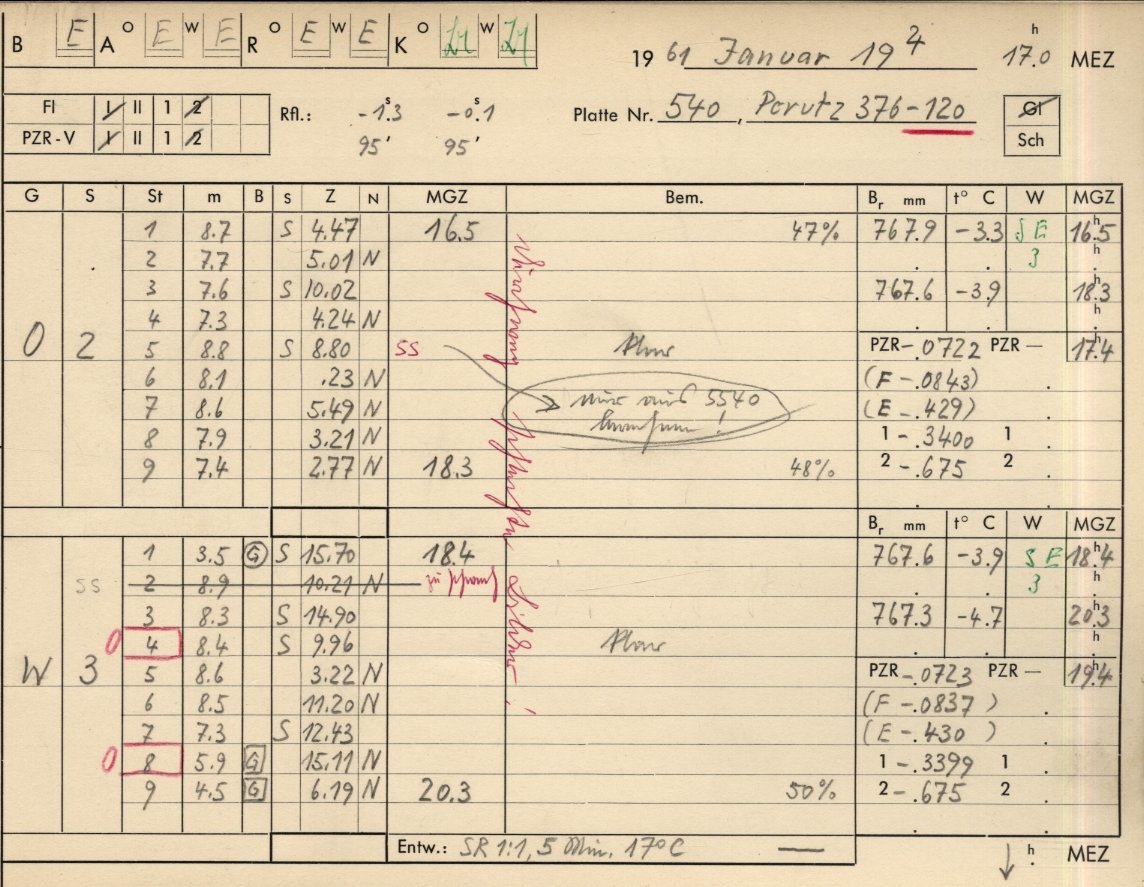 B E A O E W E R O E W E K O W
19 61 Januar 19 17.0 h MEZ
Fl I II 1 2 Rfl.: -1.3 s -0.1 s Platte Nr. 540, Perutz 376-120 Gl
PZR-V I II 1 2 95' 95' Sch
G S St m B S Z N MGZ Bem. Br mm t° C W MGZ
1 8.7 S 4.47 16.5 47% 767.9 -3.3 SE 16.5 h
2 7.7 5.01 N 3 h
3 7.6 S 10.02 767.6 -3.9 18.3 h
4 7.3 4.24 N h
O 2 5 8.8 S 8.80 SS klar PZR-.0722 PZR- 17.4
6 8.1 .23 N (F-.0843)
7 8.6 5.49 N nur aus 5540 (E-.429)
8 7.9 3.21 N 1-.3400 1
9 7.4 2.77 N 18.3 48% 2-.675 2
Br mm t° C W MGZ
1 3.5 G S 15.70 18.4 767.6 -3.9 SE 18.4 h
SS 2 8.9 10.21 N zu schwach 3 h
3 8.3 S 14.90 767.3 -4.7 20.3 h
0 4 8.4 S 9.96 klar h
W 3 5 8.6 3.22 N PZR-.0723 PZR- 19.4 h
6 8.5 11.20 N (F-.0837)
7 7.3 S 12.43 (E-.430)
0 8 5.9 G 15.11 N 1-.3399 1
9 4.5 G 6.19 N 20.3 50% 2-.675 2
Entw.: SR 1:1, 5 Min. 17°C — h MEZ